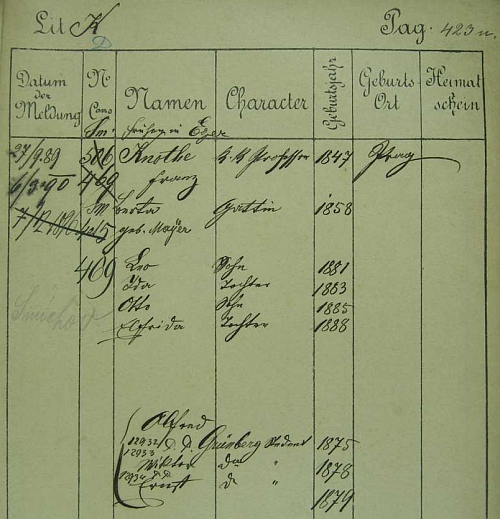 Lit K
Pag. 423
Datum der Meldung
No Cons
Namen
Character
Geburtsjahr
Geburts-Ort
Heimatschein
Sm. früher in Eger
27/9.89 506 Knothe k. k. Professor 1847 Prag
6/3 90 469 Franz
Sm. berta Gattin 1858
geb. Mayer
469 Leo Sohn 1881
Ida Tochter 1883
Otto Sohn 1885
Elfrida Tochter 1888
Smichov
Alfred
12932 Grünberg Student 1875
12933 Wiktor do " 1878
Ernst " 1879